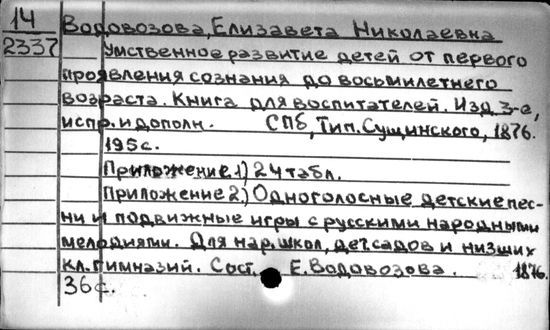 14 Водовозова, Елизавета Николаевна
2337 Умственное развитие детей от первого
проявления сознания до восьмилетнего
возраста. Книга для воспитателей. Изд. 3-е,
испр. и дополн. СПб, Тип. Сущинского, 1876.
195с.
Приложение 1) 24 табл.
Приложение 2) Одноголосные детские пес-
ни и подвижные игры с русскими народными
мелодиями. Для нар. школ, дет. садов и низших
кл. гимназий. Сост. Е. Водовозова. 1876.
36с.